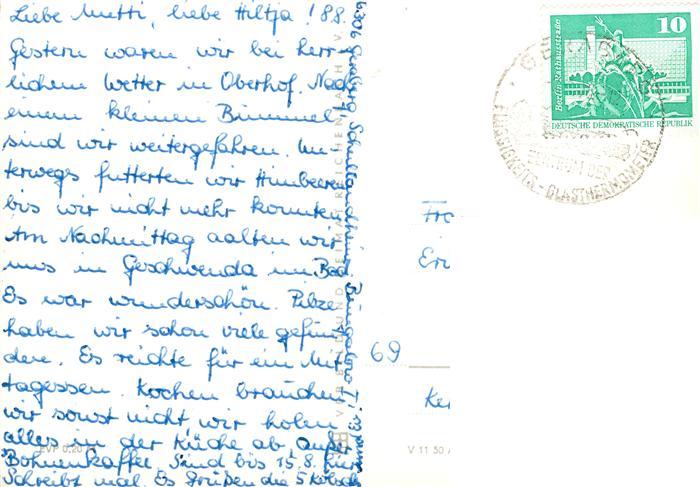 Liebe Mutti, liebe Hiltja! 8.8.
Gestern waren wir bei herr-
lichem Wetter in Oberhof. Nach
einem kleinen Bummel
sind wir weitergefahren. Un-
terwegs futterten wir Himbeeren
bis wir nicht mehr konnten.
Am Nachmittag aalten wir
uns in Geschwenda im Bad
Es war wunderschön. Pilze
haben wir schon viele gefun-
den. Es reichte für ein Mit-
tagessen. Kochen brauchen
wir sonst nicht, wir holen
alles in der Küche ab, außer
Bohnenkaffee. Sind bis 15.8. hier
Schreibt mal. Es grüßen die 5
6306 Schullandheim
VEB BILD UND HEIMAT REICHENBACH
EVP 0,20
V 11 50
10
Berlin, Rathausstraße
DEUTSCHE DEMOKRATISCHE REPUBLIK
ZENTRUM DER
FLÜSSIGKEITS-GLASTHERMOMETER
Fr
69
Ke